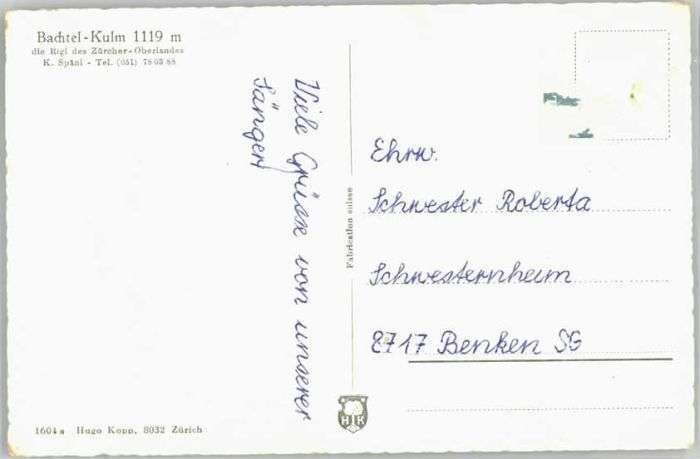 Bachtel-Kulm 1119 m
die Rigi des Zürcher-Oberlandes
K. Späni - Tel. (051) 78 03 88
Viele Grüsse von unserer
Fabrication suisse
Ehrw.
Schwester Roberta
Schwesternheim
8717 Benken SG
H K
1604 a Hugo Kopp, 8032 Zürich